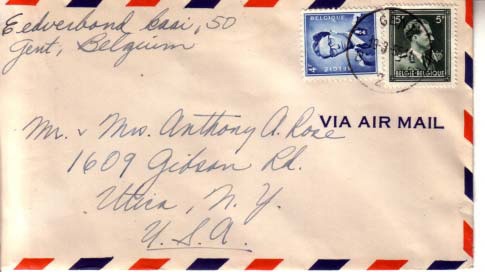 Eedverbond Caai, 50
Gent, Belgium
BELGIQUE
BELGIE
4F
5F 5F
BELGIE-BELGIQUE
VIA AIR MAIL
Mr. & Mrs. Anthony A. Rose
1609 Gibson Rd.
Utica, N.Y.
U.S.A.